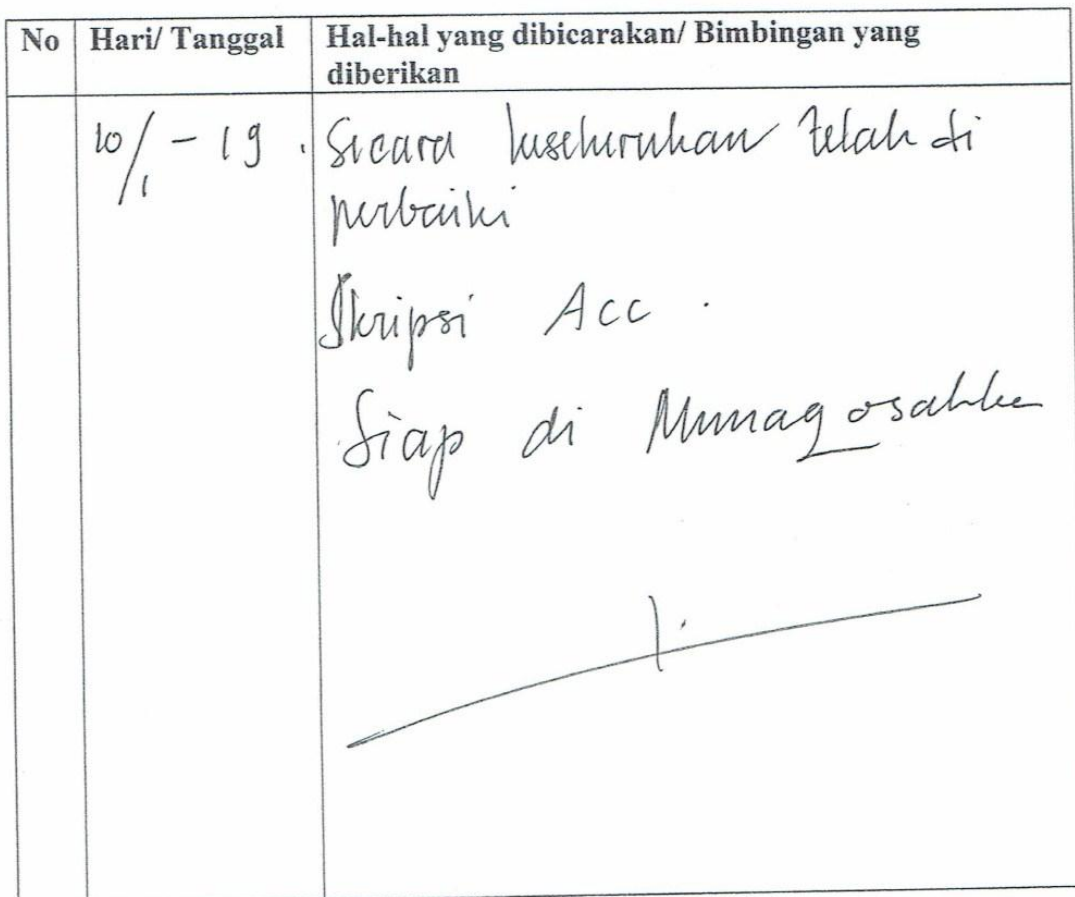 No Hari/ Tanggal Hal-hal yang dibicarakan/ Bimbingan yang
diberikan
10/1 - 19. Secara keseluruhan telah di
perbaiki
Skripsi Acc.
Siap di Munaqosahke